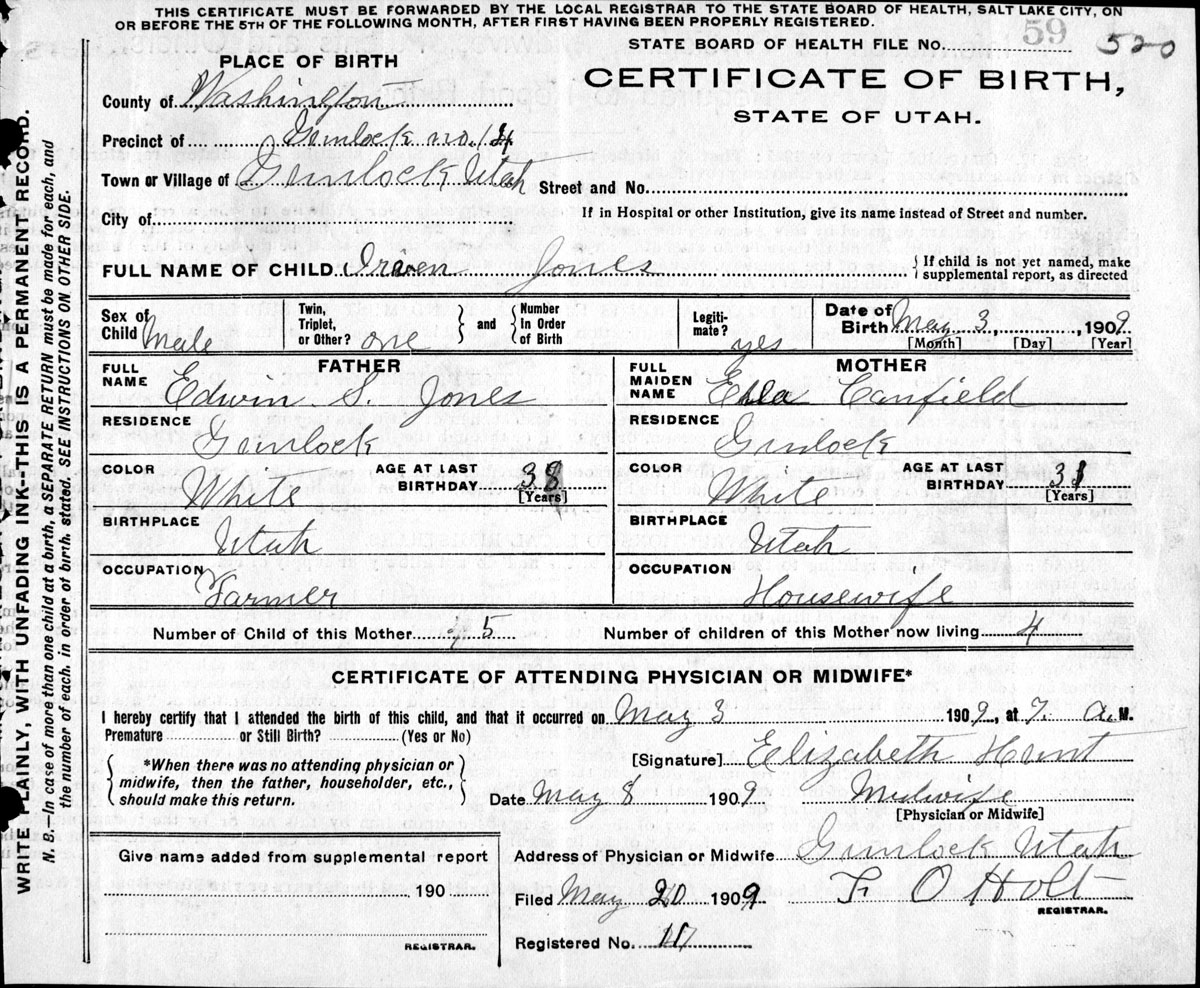 THIS CERTIFICATE MUST BE FORWARDED BY THE LOCAL REGISTRAR TO THE STATE BOARD OF HEALTH, SALT LAKE CITY, ON
OR BEFORE THE 5TH OF THE FOLLOWING MONTH, AFTER FIRST HAVING BEEN PROPERLY REGISTERED.
STATE BOARD OF HEALTH FILE No. 59 520
PLACE OF BIRTH
CERTIFICATE OF BIRTH,
STATE OF UTAH.
County of Washington
Precinct of Gunlock no. 14
Town or Village of Gunlock Utah Street and No.
City of If in Hospital or other Institution, give its name instead of Street and number.
FULL NAME OF CHILD Iraven Jones { If child is not yet named, make
supplemental report, as directed
Sex of Child Male Twin, Triplet, or Other? one } and { Number In Order of Birth Legiti- mate? yes Date of Birth May 3, 1909
[Month] [Day] [Year]
FATHER MOTHER
FULL NAME Edwin S. Jones FULL MAIDEN NAME Ella Canfield
RESIDENCE Gunlock RESIDENCE Gunlock
COLOR White AGE AT LAST BIRTHDAY 38 [Years] COLOR White AGE AT LAST BIRTHDAY 31 [Years]
BIRTHPLACE Utah BIRTHPLACE Utah
OCCUPATION Farmer OCCUPATION Housewife
Number of Child of this Mother 5 Number of children of this Mother now living 4
CERTIFICATE OF ATTENDING PHYSICIAN OR MIDWIFE*
I hereby certify that I attended the birth of this child, and that it occurred on May 3 1909, at 7. A.M.
Premature or Still Birth? (Yes or No)
[Signature] Elizabeth Hunt
{ *When there was no attending physician or
midwife, then the father, householder, etc.,
should make this return. }
Date May 8 1909 Midwife
[Physician or Midwife]
Give name added from supplemental report
Address of Physician or Midwife Gunlock Utah
190
Filed May 20 1909 F O Holt
REGISTRAR.
REGISTRAR.
Registered No. 11
WRITE PLAINLY, WITH UNFADING INK--THIS IS A PERMANENT RECORD.
N. B.—In case of more than one child at a birth, a SEPARATE RETURN must be made for each, and
the number of each, in order of birth, stated. SEE INSTRUCTIONS ON OTHER SIDE.